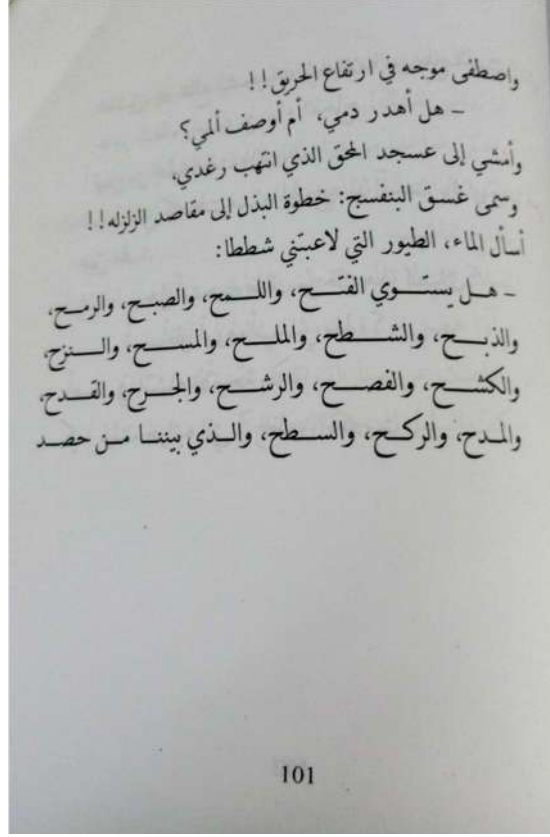 واصطفى موجه في ارتفاع الحريق!!
- هل أهدر دمي، أم أوصف ألمي؟
وأمشي إلى عسجد المحق الذي انتهب رغدي،
وسمى غسق البنفسج: خطوة البذل إلى مقاصد الزلزله!!
أسأل الماء، الطيور التي لاعبتني شططا:
- هل يستوي الفتح، واللمح، والصبح، والرمح،
والذبح، والشطح، والملح، والمسح، والنزح،
والكشح، والفصح، والرشح، والجرح، والقدح،
والمدح، والركح، والسطح، والذي بيننا من حصد
101